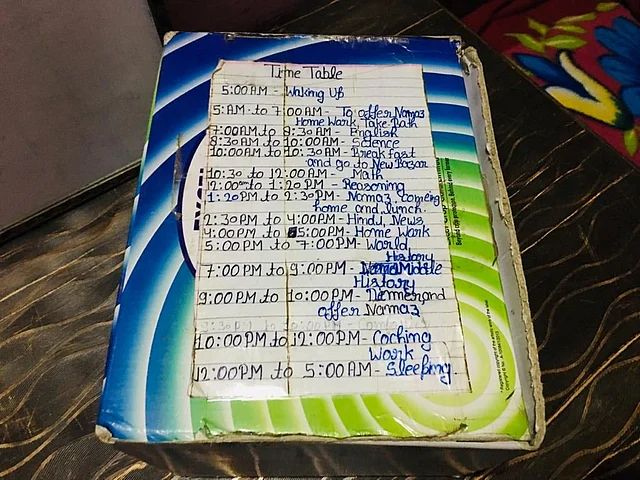 Time Table
5:00 AM - Waking UP
5:AM to 7:00 AM - To offer Namaz
Home Work, Take Bath
7:00AM to 8:30AM - English
8:30AM to 10:00AM - Science
10:00AM to 10:30AM - Breakfast
and go to New Bazar
10:30 to 12:00 AM - Math
12:00 to 1:20 PM - Reasoning
1:20PM to 2:30PM - Namaz, coming
home and lunch.
2:30 PM to 4:00PM - Hindi, News
4:00 PM to 5:00PM - Home Work
5:00 PM to 7:00PM - World
History
7:00 PM to 9:00 PM - Middle
History
9:00 PM to 10:00 PM - Dinner and
offer Namaz
10:00 PM to 12:00 PM - Coching
Work
12:00PM to 5:00AM - Sleeping